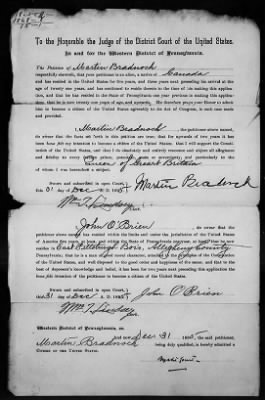 To the Honorable the Judge of the District Court of the United States.
In and for the Western District of Pennsylvania.
The Petition of Martin Bradnock
respectfully sheweth, that your petitioner is an alien, a native of Canada
and that he has resided in the United States for five years, and three years next preceding his arrival at the
age of twenty one years, and has continued to reside therein to the time of his making this application,
and that he has resided in the State of Pennsylvania one year previous to making this application; and
that he is now twenty one years of age, and upwards. He therefore prays your Honor to admit
him to become a citizen of the United States agreeably to an Act of Congress, in such case made
and provided.
Martin Bradnock, the petitioner above named,
do swear that the facts set forth in this petition are true; that for upwards of two years it has
been bona fide my intention to become a citizen of the United States; that I will support the Constitution
of the United States, and that I do absolutely and entirely renounce and abjure all allegiance
and fidelity to every prince, potentate, state or sovereignty, and particularly to the
Queen of Great Britain
of whom I was heretofore a subject.
Sworn and subscribed in open Court,
this 31 day of Dec A. D. 1885
Martin Bradnock
John O'Brien, do swear that the
petitioner above named has resided within the limits and under the jurisdiction of the United States
of America five years, at least, and within the State of Pennsylvania one year, at least; that he now resides
in East Pittsburgh Boro, Allegheny County
Pennsylvania; that he is a man of good moral character, attached to the principles of the Constitution of the
United States, and well disposed to the good order and happiness of the same; and that to the
best of deponent's knowledge and belief, it has been for two years next preceding this application
bona fide his intention to become a citizen of the United States.
Sworn and subscribed in open Court,
this 31 day of Dec A. D. 1885
John O'Brien
Western District of Pennsylvania, ss.
And now Dec 31 1885, the said petitioner,
Martin Bradnock being duly qualified, is hereby admitted a
Citizen of the United States.
By the Court